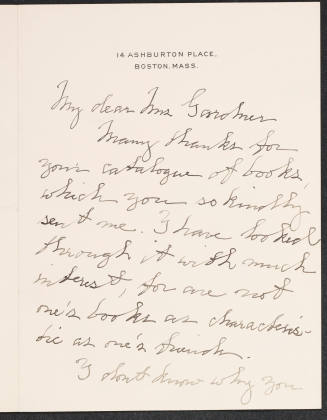 14 ASHBURTON PLACE,
BOSTON, MASS.
My dear Mrs Gardner
Many thanks for
your catalogue of books,
which you so kindly
sent me. I have looked
through it with much
interest, for are not
one's books as characteris-
tic as one's friends.
I don't know why you